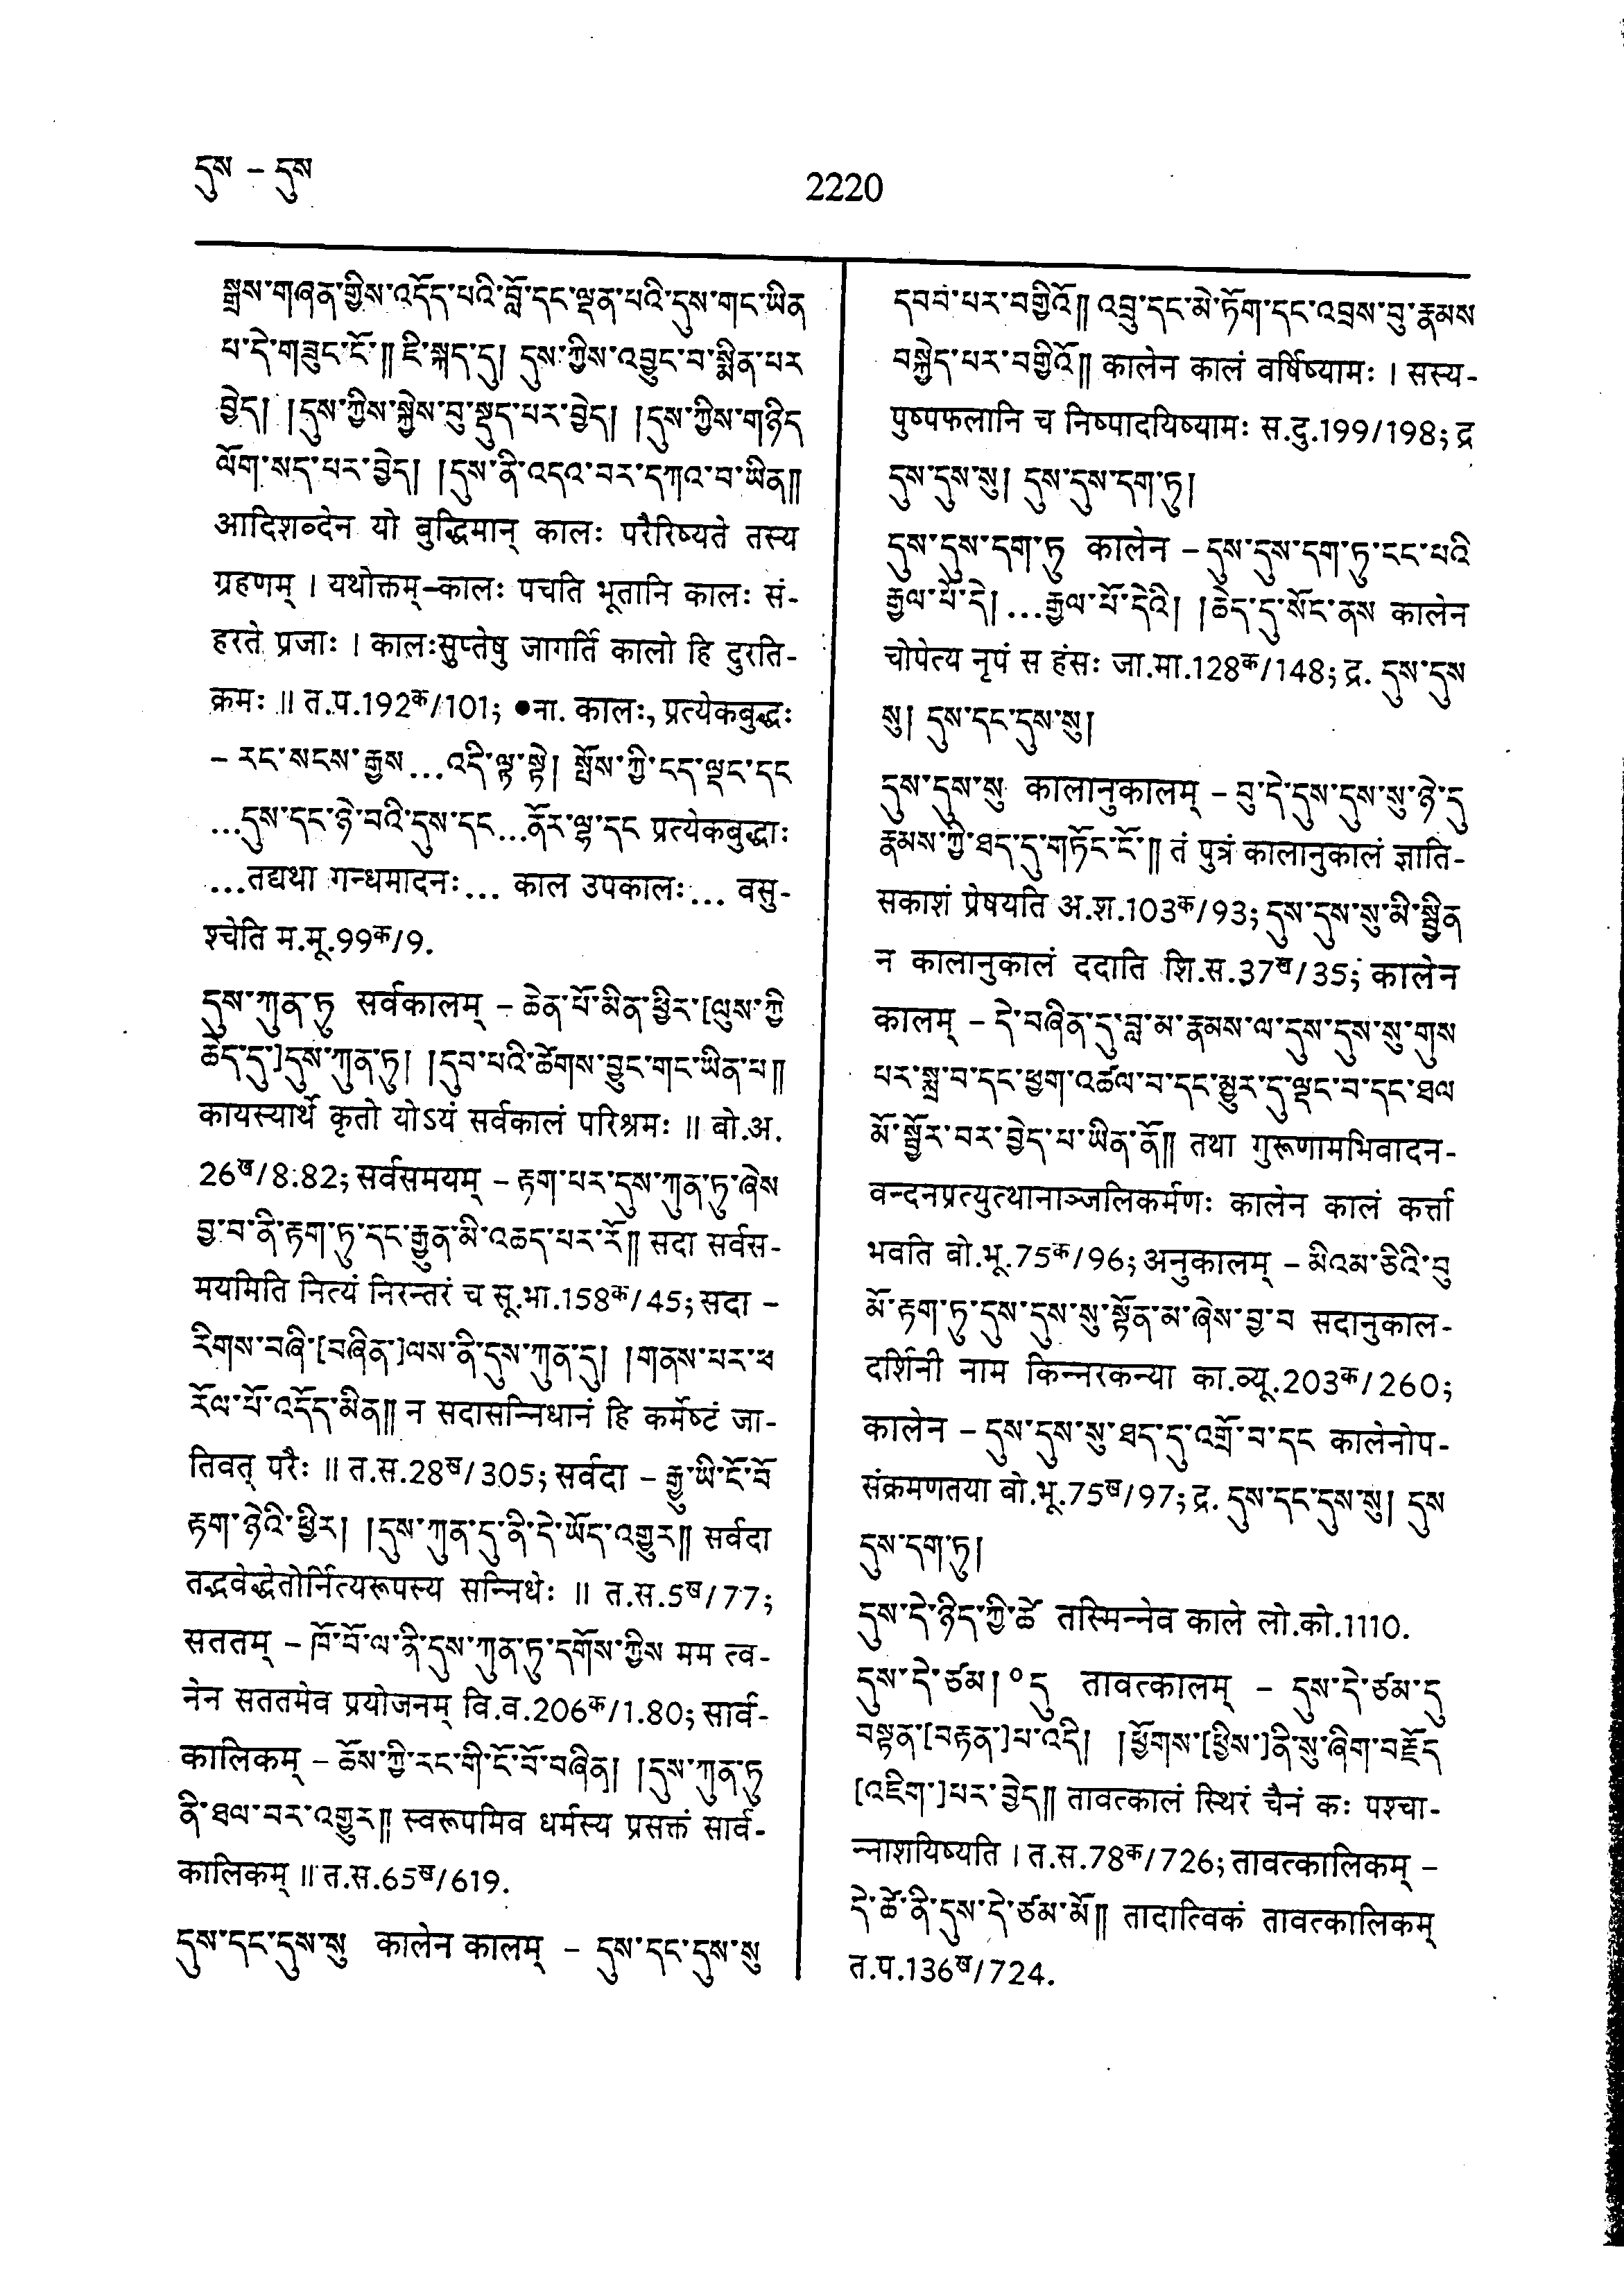 དུས – དུས
2220
སྒྲས་གཞན་གྱིས་འདོད་པའི་བློ་དང་ལྡན་པའི་དུས་གང་ཡིན
པ་དེ་གཟུང་ངོ་༎ ཇི་སྐད་དུ། དུས་ཀྱིས་འབྱུང་བ་སྨིན་པར
བྱེད། །དུས་ཀྱིས་སྐྱེས་བུ་སྡུད་པར་བྱེད། །དུས་ཀྱིས་གཉིད
ལོག་སད་པར་བྱེད། །དུས་ནི་འདའ་བར་དཀའ་བ་ཡིན༎
आदिशब्देन यो बुद्धिमान् कालः परैरिष्यते तस्य
ग्रहणम् । यथोक्तम्–कालः पचति भूतानि कालः सं-
हरते प्रजाः । कालःसुप्तेषु जागर्ति कालो हि दुरति-
क्रमः ॥ त.प.192क/101; ●ना. कालः, प्रत्येकबुद्धः
– རང་སངས་རྒྱས...འདི་ལྟ་སྟེ། སྤོས་ཀྱི་ངད་ལྡང་དང
...དུས་དང་ཉེ་བའི་དུས་དང...ནོར་ལྷ་དང प्रत्येकबुद्धाः
...तद्यथा गन्धमादनः... काल उपकालः... वसु-
श्चेति म.मू.99क/9.
དུས་ཀུན་ཏུ सर्वकालम् – ཆེན་པོ་མིན་ཕྱིར་[ལུས་ཀྱི
ཆེད་དུ་]དུས་ཀུན་ཏུ། །དུབ་པའི་ཚོགས་བྱུང་གང་ཡིན་པ༎
कायस्यार्थे कृतो योऽयं सर्वकालं परिश्रमः ॥ बो.अ.
26ख/8.82; सर्वसमयम् – རྟག་པར་དུས་ཀུན་ཏུ་ཞེས
བྱ་བ་ནི་རྟག་ཏུ་དང་རྒྱུན་མི་འཆད་པར་རོ༎ सदा सर्वस-
मयमिति नित्यं निरन्तरं च सू.भा.158क/45; सदा –
རིགས་བཞི་[བཞིན་]ལས་ནི་དུས་ཀུན་དུ། །གནས་པར་ཕ
རོལ་པོ་འདོད་མིན༎ न सदासन्निधानं हि कर्मेष्टं जा-
तिवत् परैः ॥ त.स.28ख/305; सर्वदा – རྒྱུ་ཡི་ངོ་བོ
རྟག་ཉེའི་ཕྱིར། །དུས་ཀུན་དུ་ནི་དེ་ཡོད་འགྱུར༎ सर्वदा
तद्भवेद्धेतोर्नित्यरूपस्य सन्निधेः ॥ त.स.5ख/77;
सततम् – ཁོ་བོ་ལ་ནི་དུས་ཀུན་ཏུ་དགོས་ཀྱིས मम त्व-
नेन सततमेव प्रयोजनम् वि.व.206क/1.80; सार्व-
कालिकम् – ཆོས་ཀྱི་རང་གི་ངོ་བོ་བཞིན། །དུས་ཀུན་ཏུ
ནི་ཐལ་བར་འགྱུར༎ स्वरूपमिव धर्मस्य प्रसक्तं सार्व-
कालिकम् ॥ त.स.65ख/619.
དུས་དང་དུས་སུ कालेन कालम् – དུས་དང་དུས་སུ
དབབ་པར་བགྱིའོ༎ འབྲུ་དང་མེ་ཏོག་དང་འབྲས་བུ་རྣམས
བསྐྱེད་པར་བགྱིའོ༎ कालेन कालं वर्षिष्यामः । सस्य-
पुष्पफलानि च निष्पादयिष्यामः स.दु.199/198; द्र
དུས་དུས་སུ། དུས་དུས་དག་ཏུ།
དུས་དུས་དག་ཏུ कालेन – དུས་དུས་དག་ཏུ་ངང་པའི
རྒྱལ་པོ་དེ། ...རྒྱལ་པོ་དེའི། །ཆེད་དུ་སོང་ནས कालेन
चोपेत्य नृपं स हंसः जा.मा.128क/148; द्र. དུས་དུས
སུ། དུས་དང་དུས་སུ།
དུས་དུས་སུ कालानुकालम् – བུ་དེ་དུས་དུས་སུ་ཉེ་དུ
རྣམས་ཀྱི་ཐད་དུ་གཏོང་ངོ་༎ तं पुत्रं कालानुकालं ज्ञाति-
सकाशं प्रेषयति अ.श.103क/93; དུས་དུས་སུ་མི་སྦྱིན
न कालानुकालं ददाति शि.स.37ख/35; कालेन
कालम् – དེ་བཞིན་དུ་བླ་མ་རྣམས་ལ་དུས་དུས་སུ་གུས
པར་སྨྲ་བ་དང་ཕྱག་འཚལ་བ་དང་མྱུར་དུ་ལྡང་བ་དང་ཐལ
མོ་སྦྱོར་བར་བྱེད་པ་ཡིན་ནོ༎ तथा गुरूणामभिवादन-
वन्दनप्रत्युत्थानाञ्जलिकर्मणः कालेन कालं कर्त्ता
भवति बो.भू.75क/96; अनुकालम् – མིའམ་ཅིའི་བུ
མོ་རྟག་ཏུ་དུས་དུས་སུ་སྟོན་མ་ཞེས་བྱ་བ सदानुकाल-
दर्शिनी नाम किन्नरकन्या का.व्यू.203क/260;
कालेन – དུས་དུས་སུ་ཐད་དུ་འགྲོ་བ་དང कालेनोप-
संक्रमणतया बो.भू.75ख/97; द्र. དུས་དང་དུས་སུ། དུས
དུས་དག་ཏུ།
དུས་དེ་ཉིད་ཀྱི་ཚེ तस्मिन्नेव काले लो.को.1110.
དུས་དེ་ཙམ། ༠དུ तावत्कालम् – དུས་དེ་ཙམ་དུ
བསྟན་[བརྟན་]པ་འདི། །ཕྱོགས་[ཕྱིས་]ནི་སུ་ཞིག་བརྗོད
[འཇིག་]པར་བྱེད༎ तावत्कालं स्थिरं चैनं कः पश्चा-
न्नाशयिष्यति । त.स.78क/726; तावत्कालिकम् –
དེ་ཚེ་ནི་དུས་དེ་ཙམ་མོ༎ तादात्विकं तावत्कालिकम्
त.प.136ख/724.